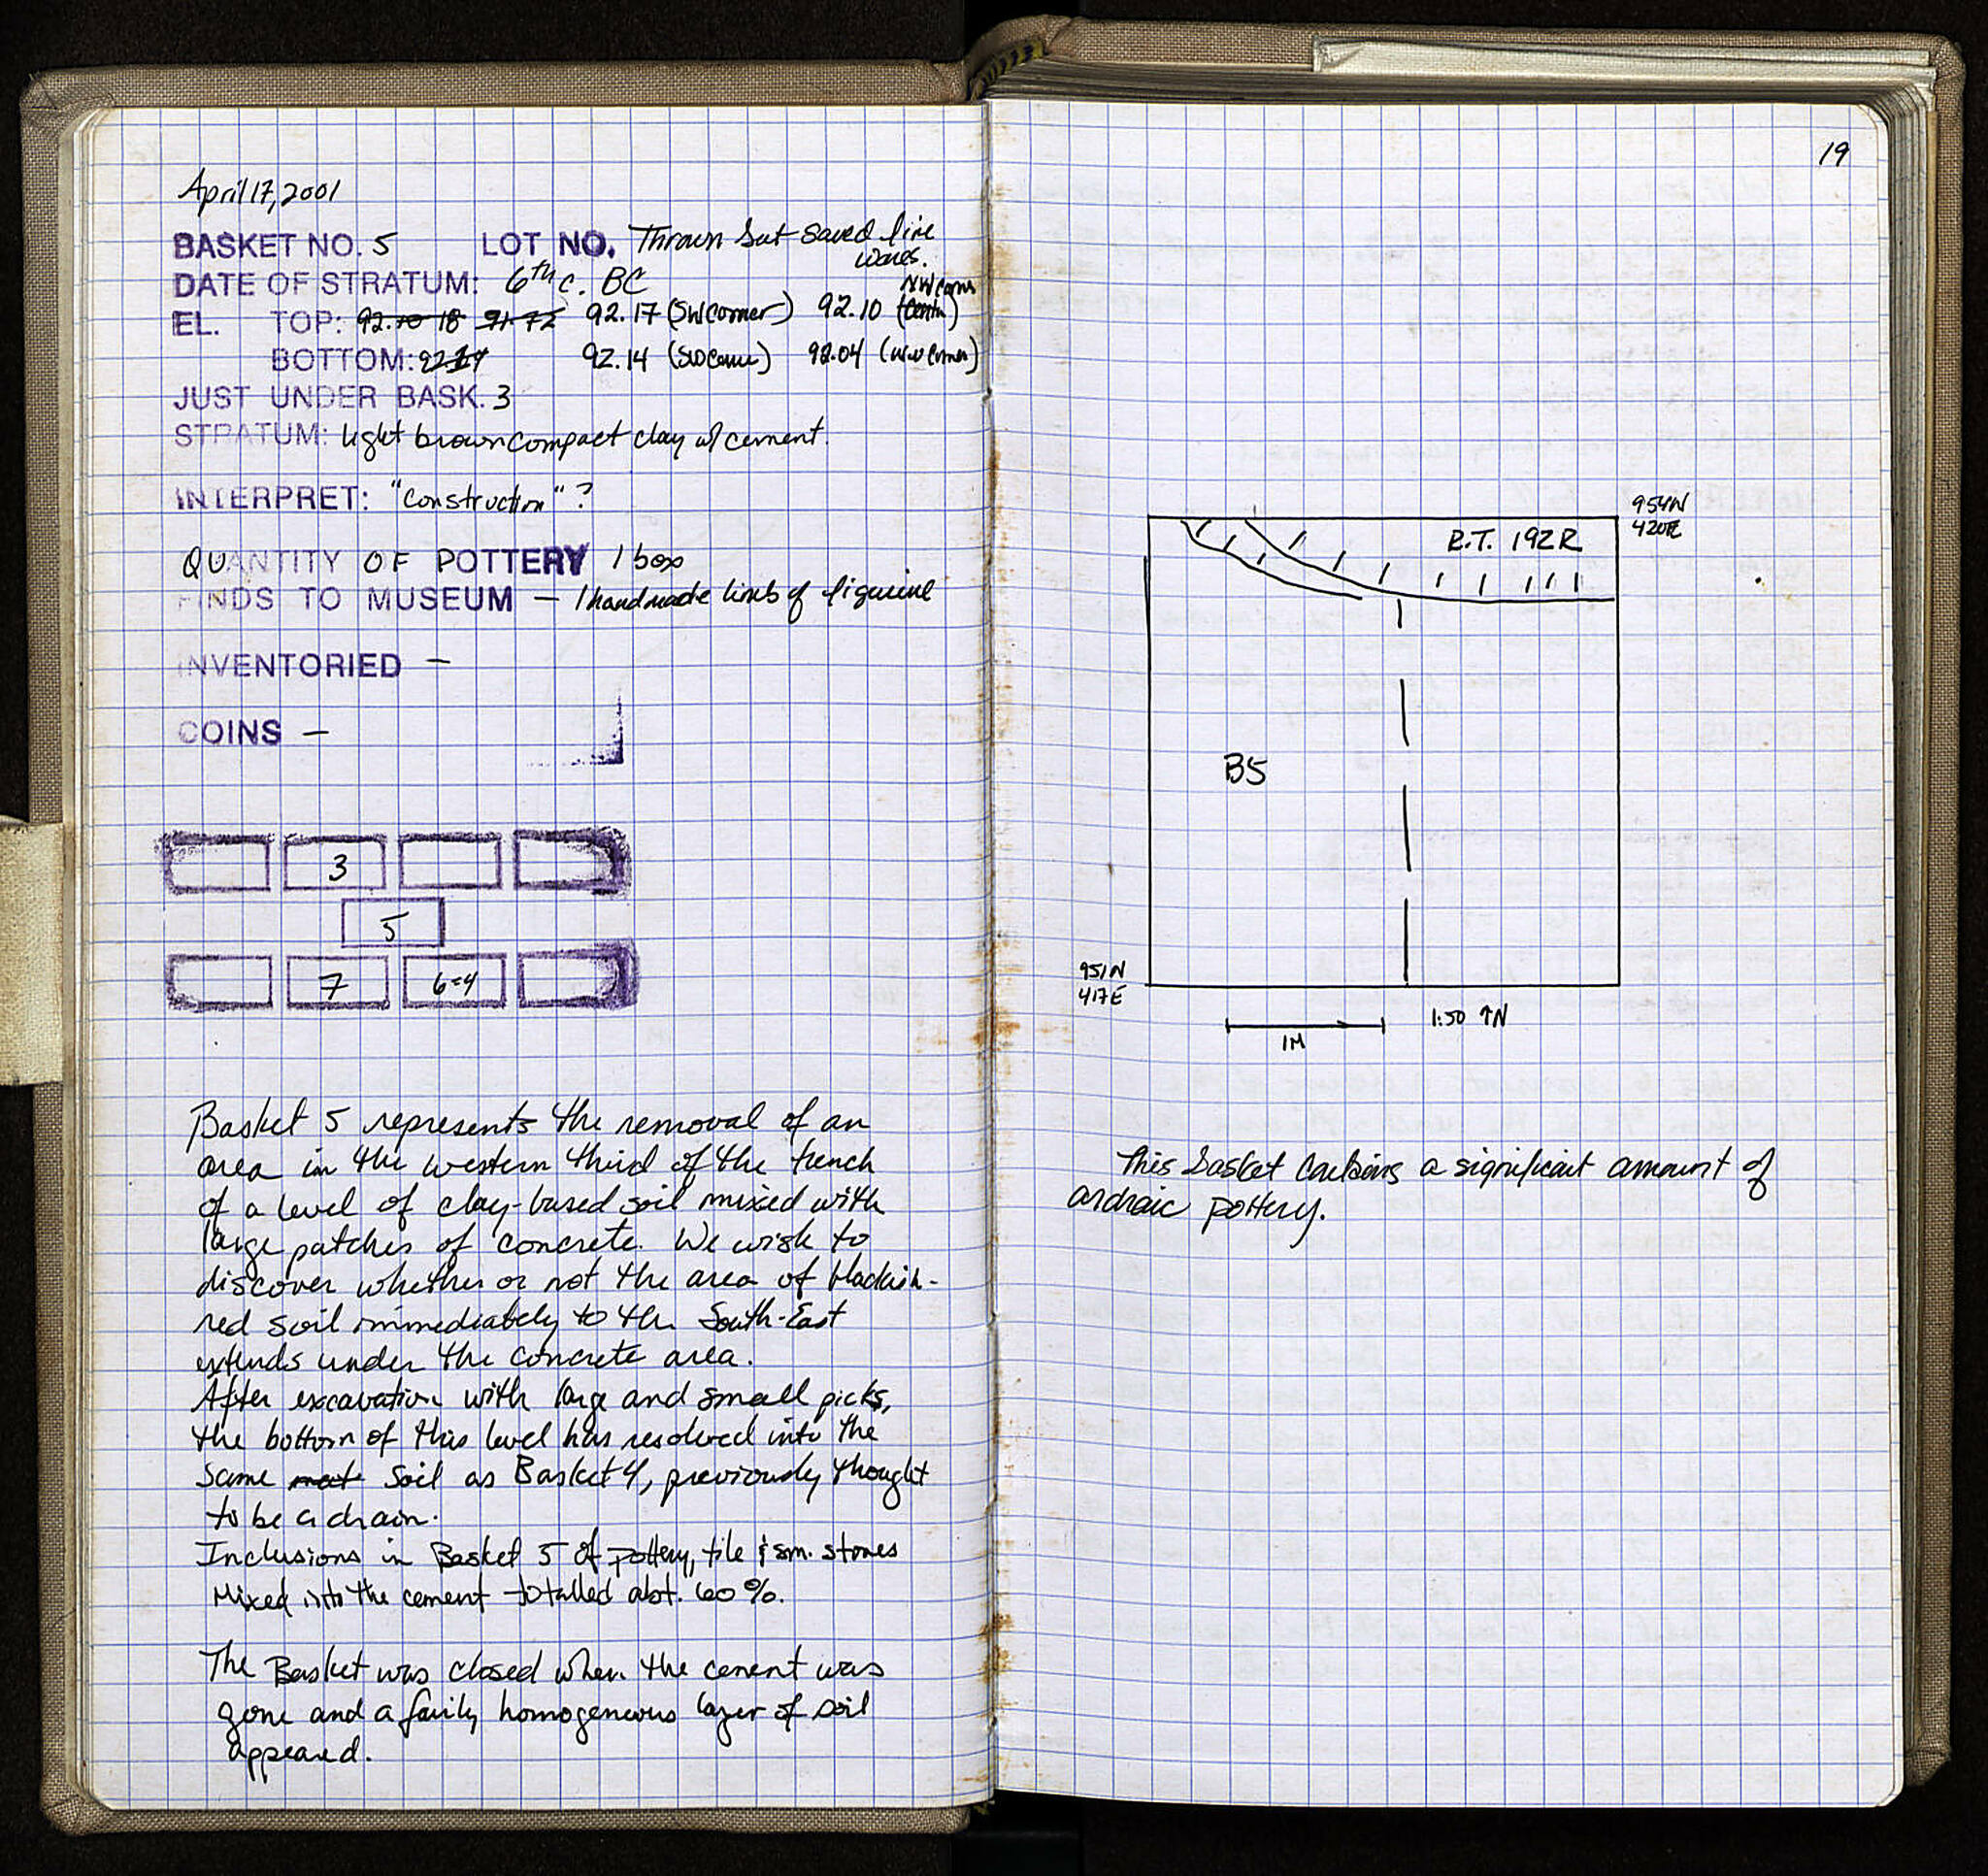 April 17, 2001
BASKET NO. 5 LOT NO. Thrown but saved fine
wares.
DATE OF STRATUM: 6th c. BC
NW corner
EL. TOP: 92.10 18 91.72 92.17 (SW corner) 92.10 (Center)
BOTTOM: 92.14 (SW corner) 92.04 (NW corner)
JUST UNDER BASK. 3
STRATUM: light brown compact clay w/ cement.
INTERPRET: "construction"?
QUANTITY OF POTTERY 1 box
FINDS TO MUSEUM — 1 handmade limb of figurine
INVENTORIED —
COINS —
3
5
7 6=4
Basket 5 represents the removal of an
area in the western third of the trench
of a level of clay-based soil mixed with
large patches of concrete. We wish to
discover whether or not the area of blackish-
red soil immediately to the South-East
extends under the concrete area.
After excavation with large and small picks,
the bottom of this level has resolved into the
same mat soil as Basket 4, previously thought
to be a drain.
Inclusions in Basket 5 of pottery, tile & sm. stones
Mixed into the cement totalled abt. 60%.
The Basket was closed when the cement was
gone and a fairly homogeneous layer of soil
appeared.
19
954N
420E
R.T. 192R
B5
951N
417E
1:50 ↑N
1M
This basket contains a significant amount of
archaic pottery.